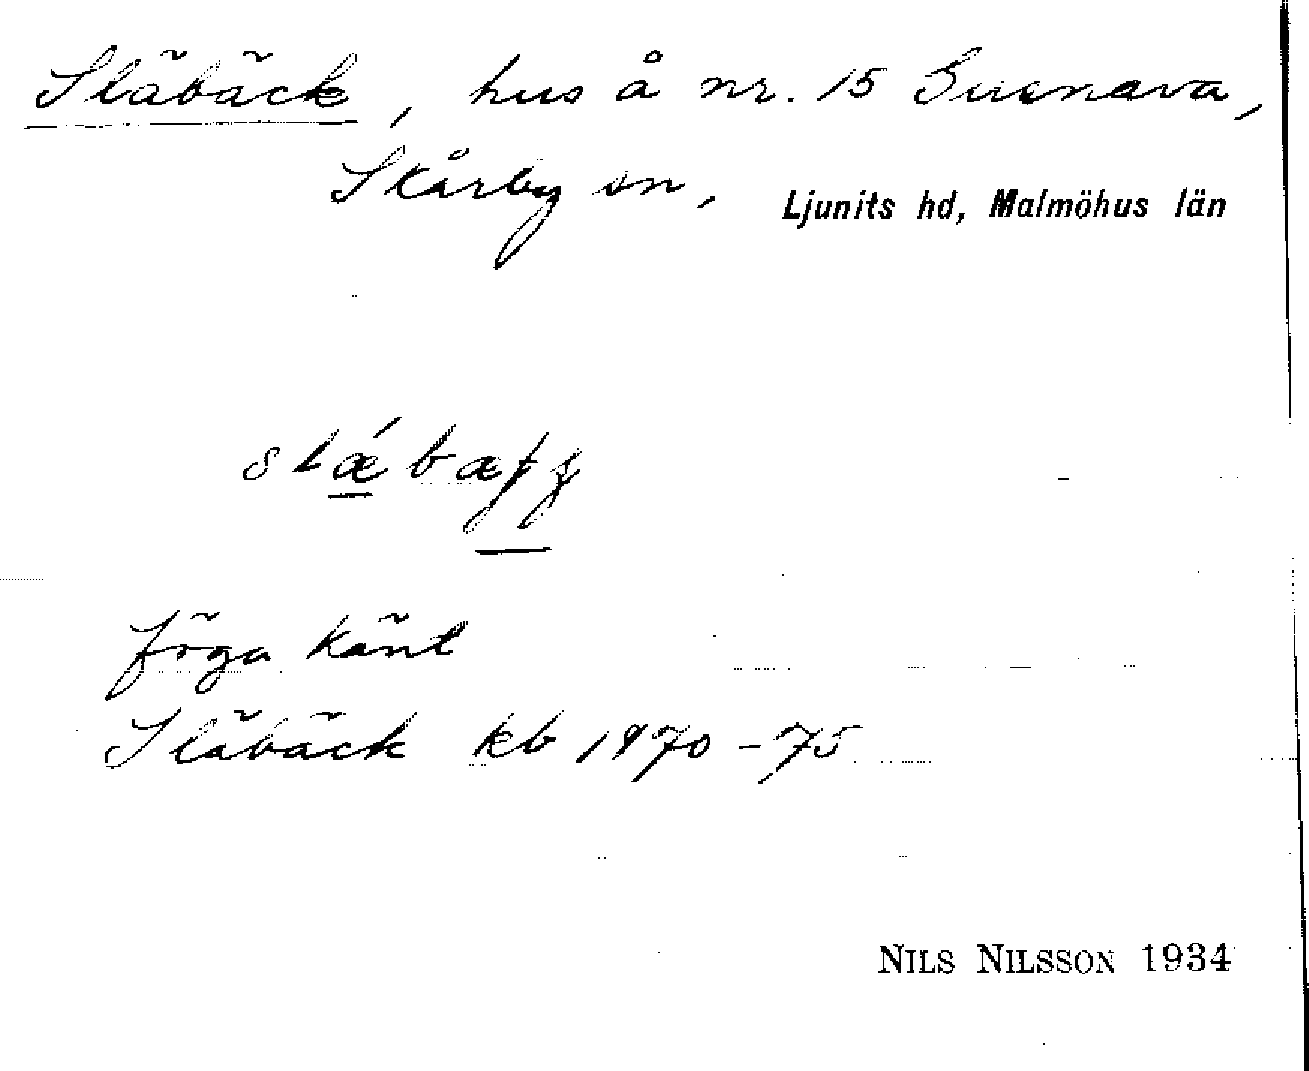 Släbäck, hus å nr. 15 Svenarva,
Skårby sn, Ljunits hd, Malmöhus län
föga känt
Släbäck kb 1970-75
NILS NILSSON 1934